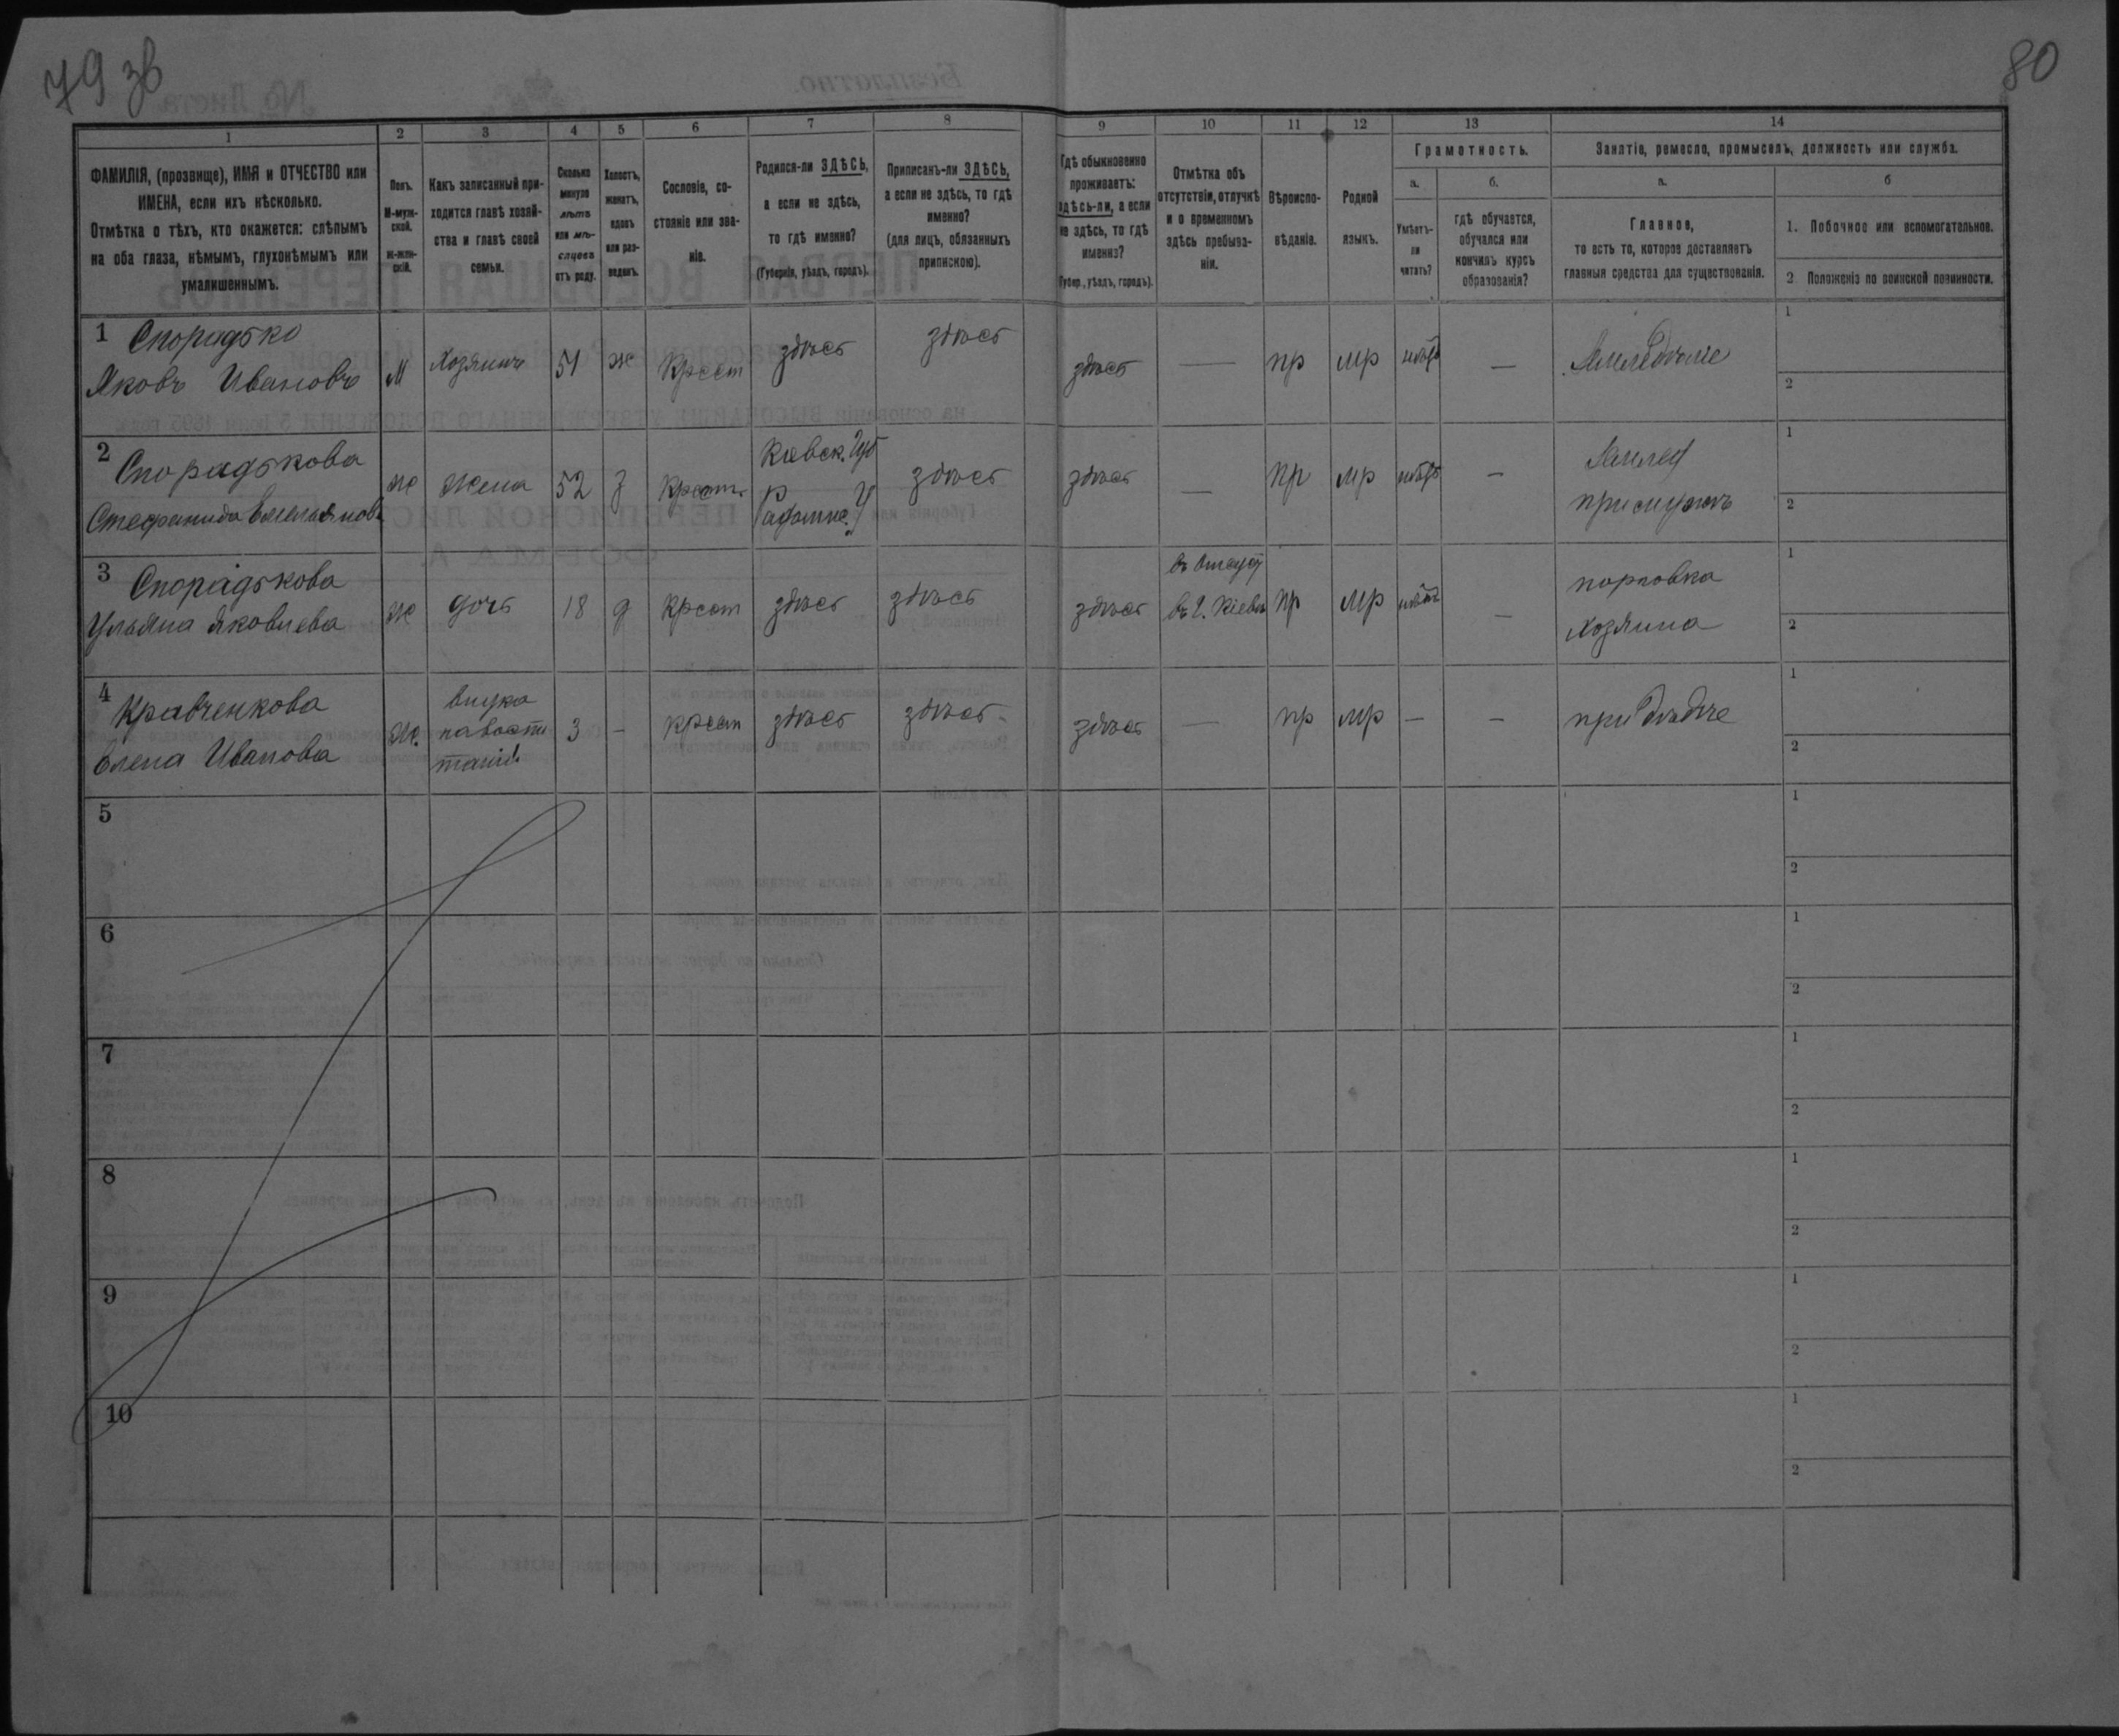 79 зв
80
1
2
3
4
5
6
7
8
9
10
11
12
13
14
ФАМИЛІЯ, (прозвище), ИМЯ и ОТЧЕСТВО или
ИМЕНА, если ихъ нѣсколько.
Отмѣтка о тѣхъ, кто окажется: слѣпымъ
на оба глаза, нѣмымъ, глухонѣмымъ или
умалишеннымъ.
Полъ.
М-муж-
ской.
ж-жен-
скій.
Какъ записанный при-
ходится главѣ хозяй-
ства и главѣ своей
семьи.
Сколько
минуло
лѣтъ
или мѣ-
сяцевъ
отъ роду.
Холостъ,
женатъ,
вдовъ
или раз-
веденъ.
Сословіе, со-
стояніе или зва-
ніе.
Родился-ли ЗДѢСЬ,
а если не здѣсь,
то гдѣ именно?
(Губернія, уѣздъ, городъ).
Приписанъ-ли ЗДѢСЬ,
а если не здѣсь, то гдѣ
именно?
(для лицъ, обязанныхъ
припискою).
Гдѣ обыкновенно
проживаетъ:
здѣсь-ли, а если
не здѣсь, то гдѣ
именно?
(Губер., уѣздъ, городъ).
Отмѣтка объ
отсутствіи, отлучкѣ
и о временномъ
здѣсь пребыва-
ніи.
Вѣроиспо-
вѣданіе.
Родной
языкъ.
Грамотность.
а.
Умѣетъ-
ли
читать?
б.
гдѣ обучается,
обучался или
кончилъ курсъ
образованія?
Занятіе, ремесло, промыселъ, должность или служба.
а.
Главное,
то есть то, которое доставляетъ
главныя средства для существованія.
б
1. Побочное или вспомогательное.
2 Положеніе по воинской повинности.
1 Спорадько
Яковъ Ивановъ
М
Хозяинъ
51
ж
Крест
здѣсь
здѣсь
здѣсь
—
пр
мр
нѣтъ
—
Земледѣліе
1
2
2 Спорадькова
Стефанида Емельянова
ж
Жена
52
з
Крест
Кіевск. Губ
У
здѣсь
здѣсь
—
пр
мр
нѣтъ
—
Землед
при мужѣ
1
2
3 Спорадькова
Ульяна Яковлева
ж
дочь
18
д
Крест
здѣсь
здѣсь
здѣсь
въ Отсут
въ Г. Кіевѣ
пр
мр
нѣтъ
—
торговка
хозяина
1
2
4 Кравченкова
Елена Иванова
ж.
внука
3
—
Крест
здѣсь
здѣсь
здѣсь
—
пр
мр
—
—
при дѣдѣ
1
2
5
1
2
6
1
2
7
1
2
8
1
2
9
1
2
10
1
2